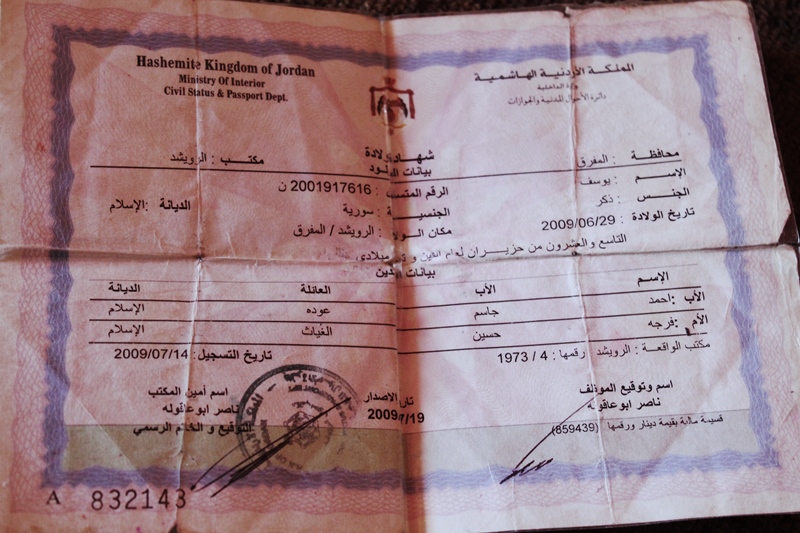 Hashemite Kingdom of Jordan
Ministry Of Interior
Civil Status & Passport Dept.
المملكة الأردنية الهاشمية
وزارة الداخلية
دائرة الأحوال المدنية والجوازات
شهادة ولادة
محافظة : المفرق
مكتب : الرويشد
بيانات المولود
الإسم : يوسف
الرقم المتسلسل : 2001917616 ن
الجنس : ذكر
الجنسية : سورية
الديانة : الإسلام
تاريخ الولادة : 2009/06/29
مكان الولادة : الرويشد / المفرق
التاسع والعشرون من حزيران لعام الفين و تسعة ميلادي
بيانات الوالدين
الإسم الأب العائلة الديانة
الأب : احمد جاسم عوده الإسلام
الأم : فرجه حسين الغياث الإسلام
مكتب الواقعة : الرويشد رقمها : 4 / 1973
تاريخ التسجيل : 2009/07/14
اسم وتوقيع الموظف
ناصر ابوعاقوله
تاريخ الاصدار
اسم أمين المكتب
ناصر ابوعاقوله
التوقيع و الختم الرسمي
قسيمة مالية بقيمة دينار ورقمها (859439)
A 832143